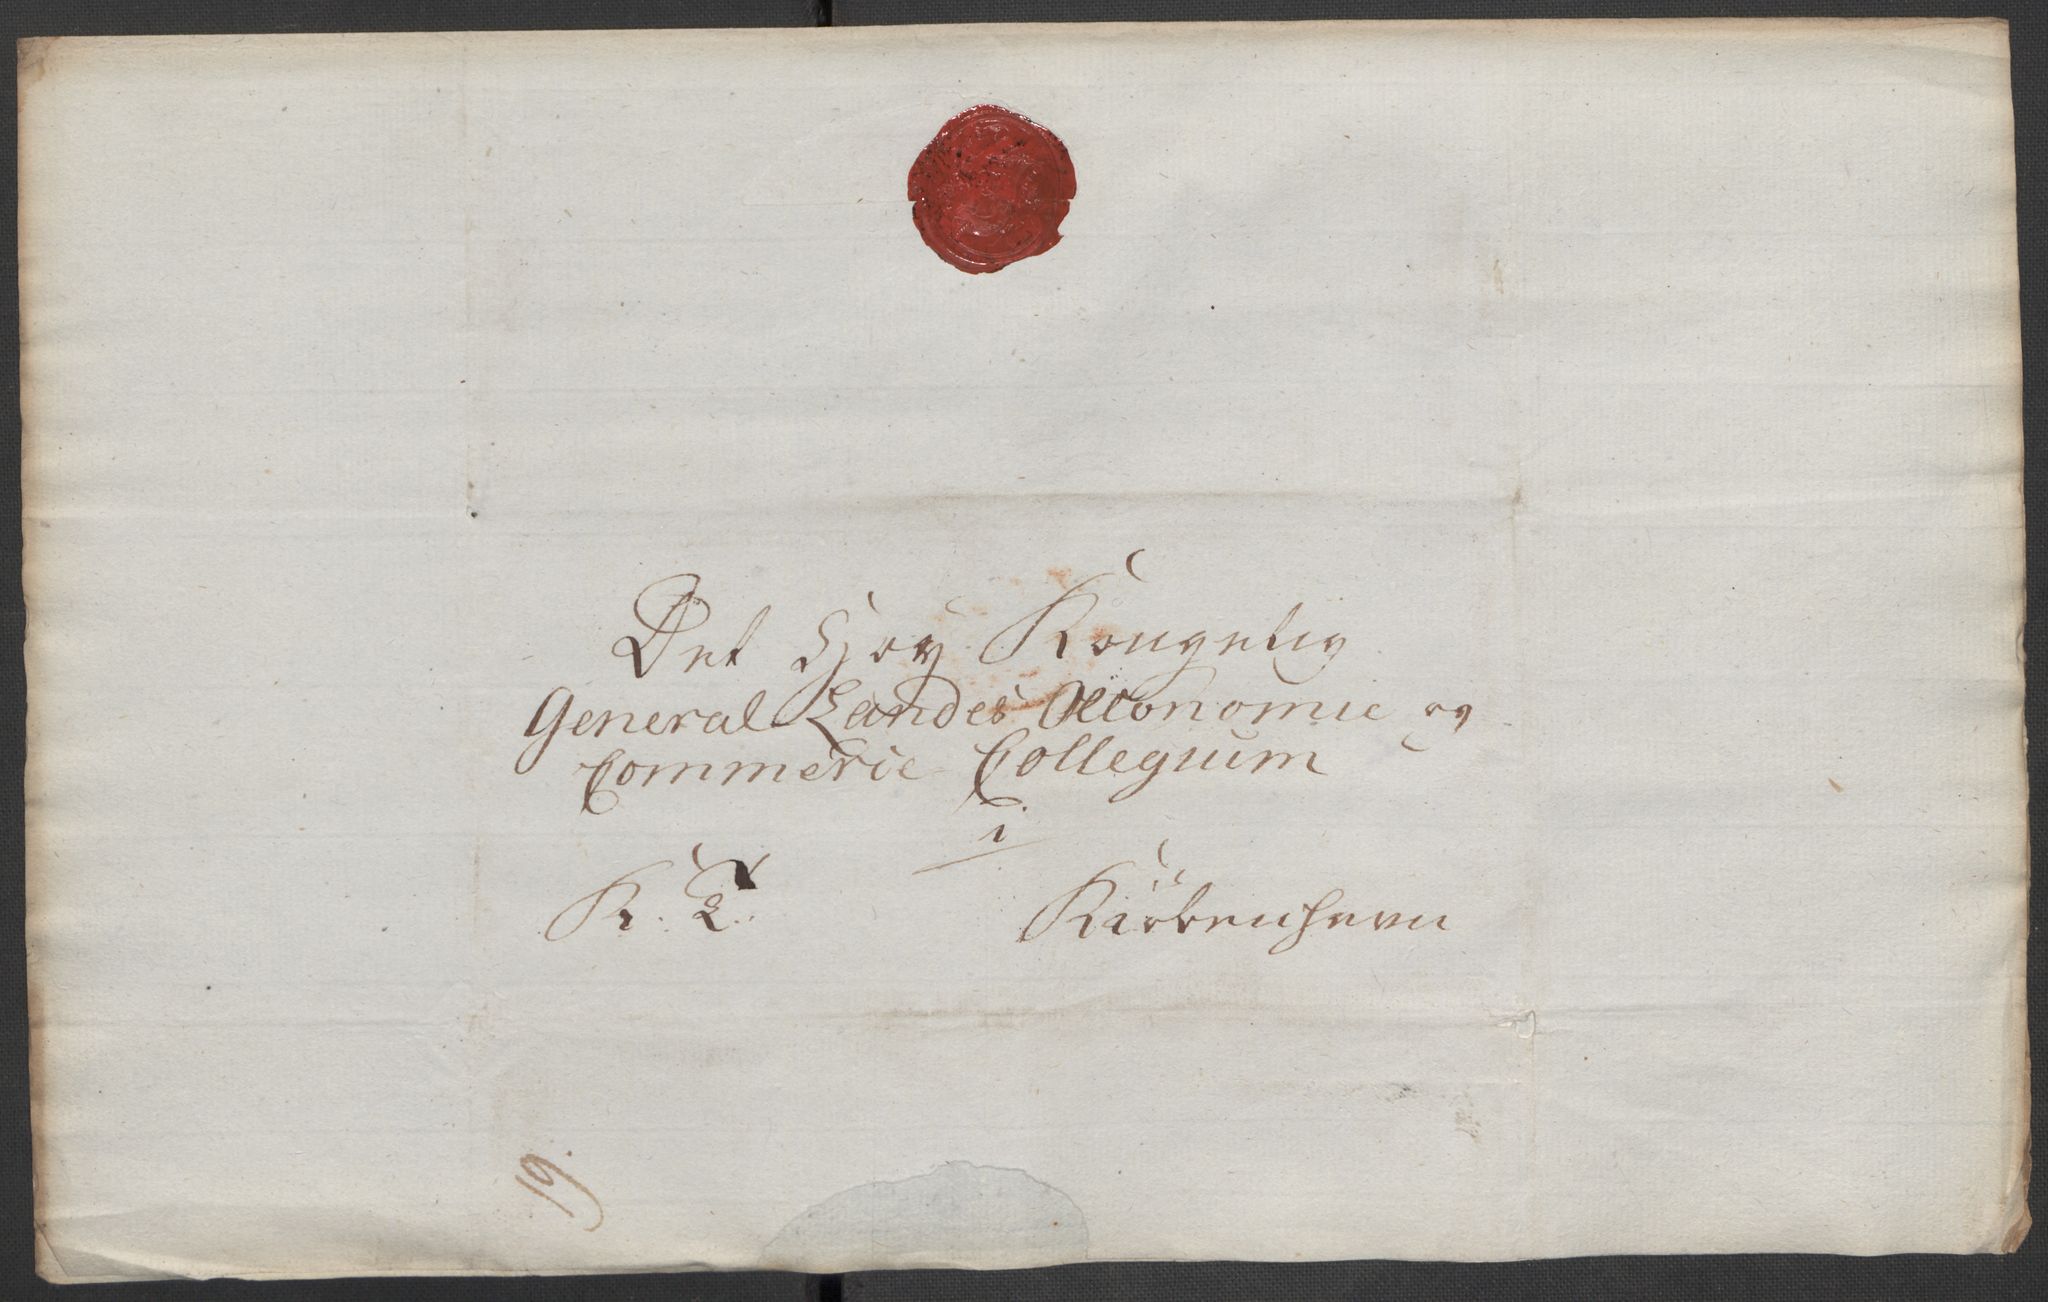 Det Høy Kongelig
General Landes Oeconomie og
Commerce Collegium
i
K. T. Kiöbenhavn
19.